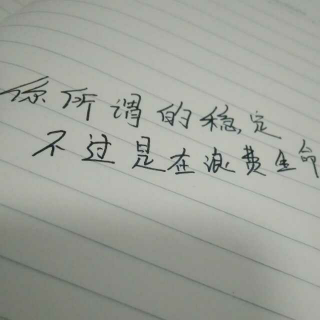 你所谓的稳定
不过是在浪费生命